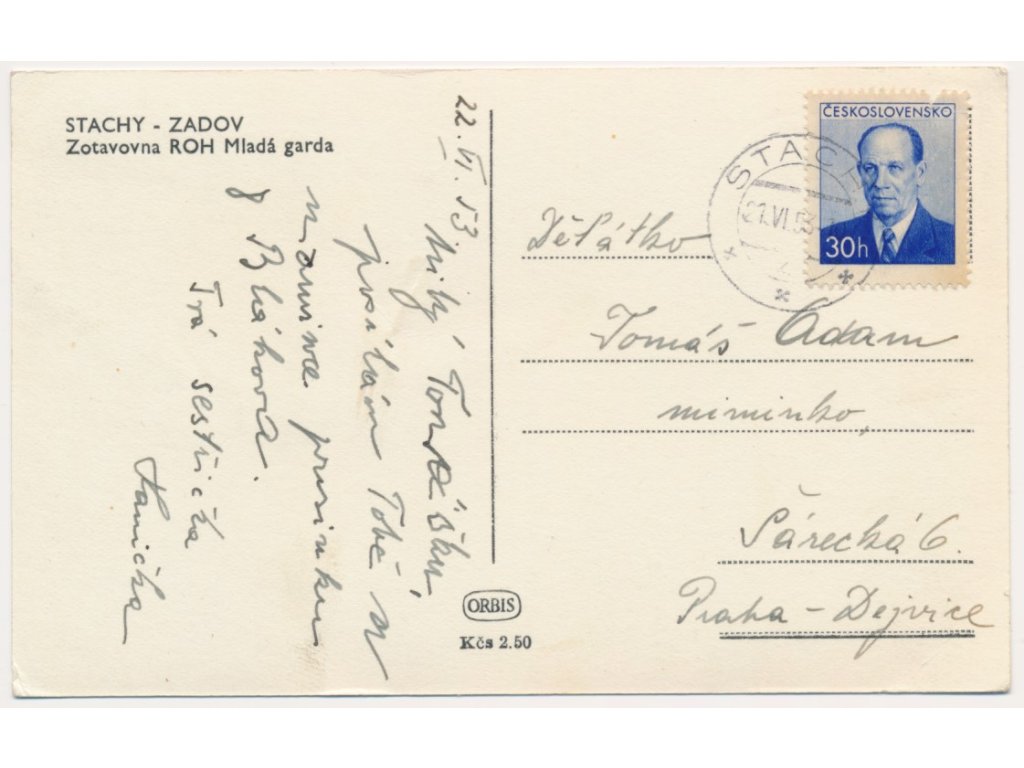 STACHY - ZADOV
Zotavovna ROH Mladá garda
22. VI. 53
Milý Tomášku,
posílám Tobě a
mamince pusinku
z Bláhova.
Tvá sestřička
Hanička
ORBIS
Kčs 2.50
ČESKOSLOVENSKO
30h
STACH
21.VI.53
Děťátko
Tomáš Adam
miminko,
Šárecká 6.
Praha - Dejvice